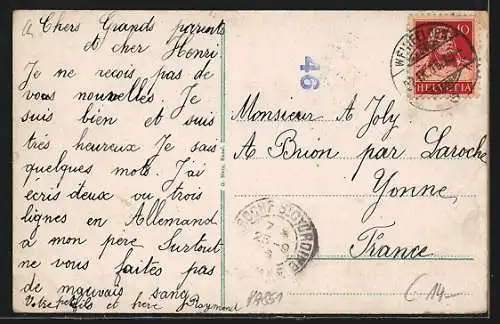 Chers Grands parents
et cher Henri.
Je ne reçois pas de
vous nouvelles. Je
suis bien et suis
très heureux Je sais
quelques mots. J'ai
écris deux ou trois
lignes en Allemand
à mon père Surtout
ne vous faites pas
de mauvais sang
Votre petit fils et frère Raymond
46
Monsieur A Joly
A Brion par Laroche
Yonne
France
10
HELVETIA
14-